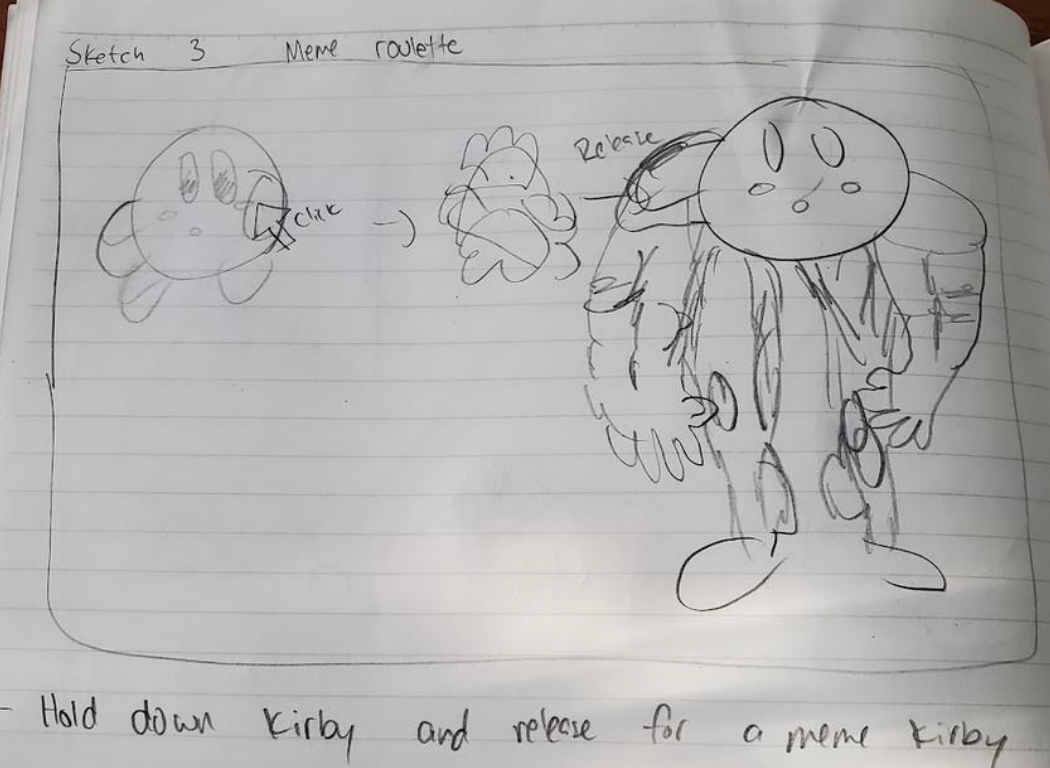 Sketch 3 Meme roulette
Release
Click
- Hold down Kirby and release for a meme Kirby